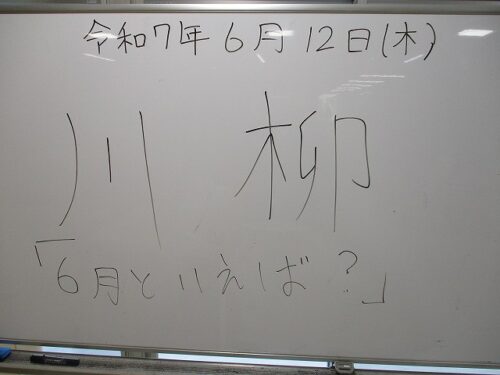 令和7年6月12日(木)
川柳
「6月といえば?」